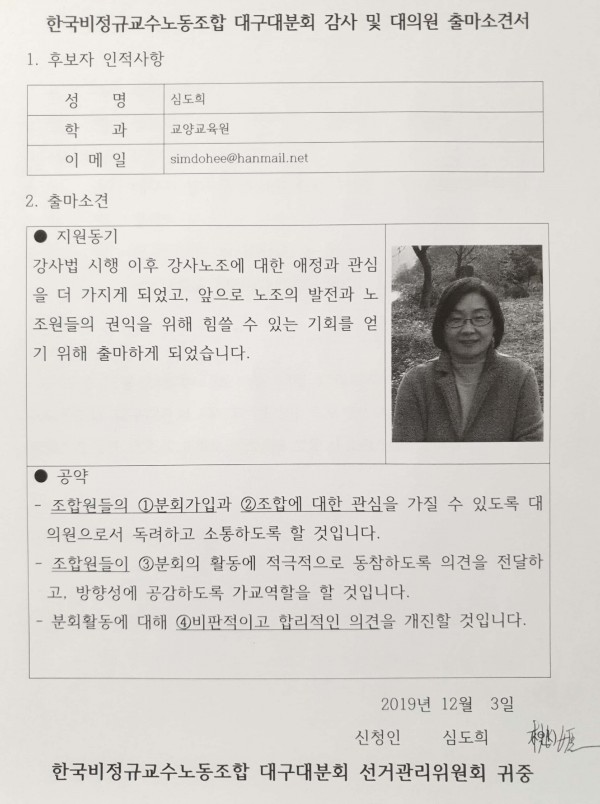 한국비정규교수노동조합 대구대분회 감사 및 대의원 출마소견서
1. 후보자 인적사항
성 명 심도희
학 과 교양교육원
이 메 일 simdohee@hanmail.net
2. 출마소견
● 지원동기
강사법 시행 이후 강사노조에 대한 애정과 관심
을 더 가지게 되었고, 앞으로 노조의 발전과 노
조원들의 권익을 위해 힘쓸 수 있는 기회를 얻
기 위해 출마하게 되었습니다.
● 공약
- 조합원들의 ①분회가입과 ②조합에 대한 관심을 가질 수 있도록 대
의원으로서 독려하고 소통하도록 할 것입니다.
- 조합원들이 ③분회의 활동에 적극적으로 동참하도록 의견을 전달하
고, 방향성에 공감하도록 가교역할을 할 것입니다.
- 분회활동에 대해 ④비판적이고 합리적인 의견을 개진할 것입니다.
2019년 12월 3일
신청인 심도희
한국비정규교수노동조합 대구대분회 선거관리위원회 귀중